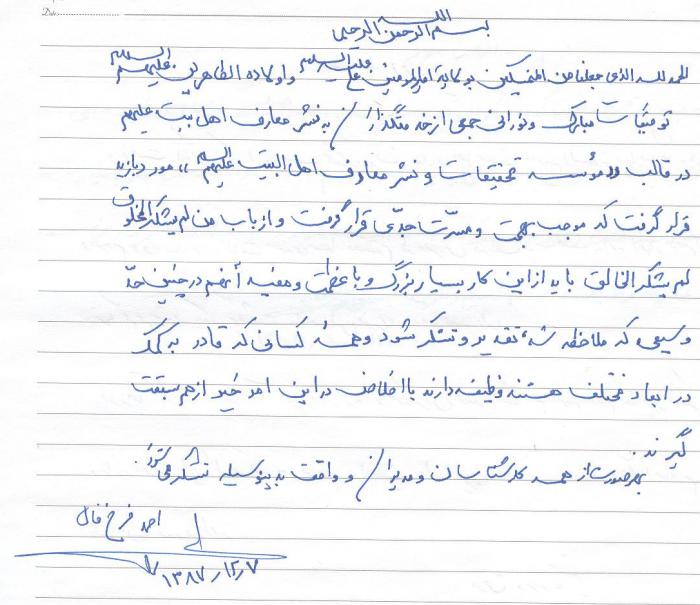 بسم الله الرحمن الرحیم
الحمد لله الذی جعلنا من المتمسکین بولایة امیرالمومنین علی علیه السلام و اولاده الطاهرین علیهم السلام
توفیقات مبارک و نورانی جمعی از خدمتگذاران به نشر معارف اهل بیت علیهم
در قالب «مؤسسه تحقیقات و نشر معارف اهل البیت علیهم السلام» مورد بازدید
قرار گرفت که موجب بهجت و مسرّت جدّی قرار گرفت و از باب من لم یشکر المخلوق
لم یشکر الخالق باید از این کار بسیار بزرگ و با عظمت و مفید آنهم در چنین حدّ
وسیعی که ملاحظه شد، تقدیر و تشکر شود و همۀ کسانی که قادر به کمک
در ابعاد مختلف هستند وظیفه دارند با اخلاص در این امر خیر از هم سبقت
گیرند.
بهرصورت از همه کارشناسان و مدیران و واقعت بدینوسیله تشکر می‌شود.
احمد فرخ فال
۱۳۸۷